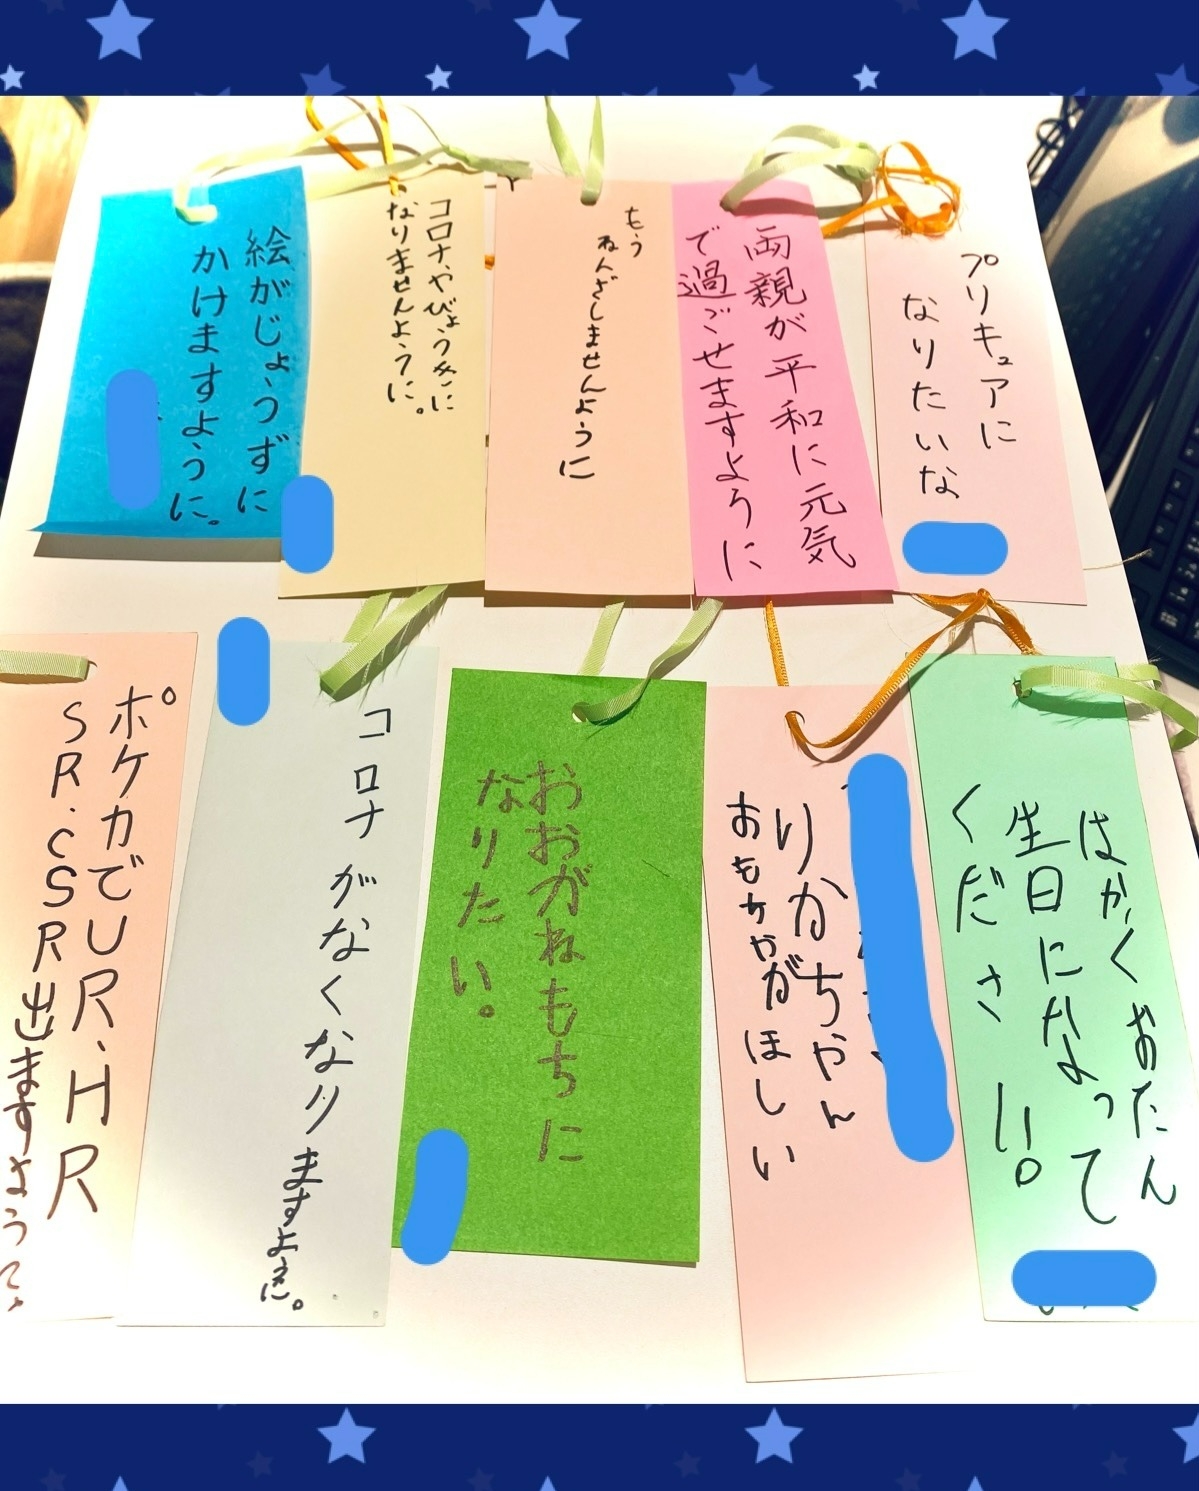 プリキュアに
なりたいな
両親が平和に元気
で過ごせますように
もう
ねんざしませんように
コロナやびょうきに
なりませんように。
絵がじょうずに
かけますように。
はかくおたん
生日になって
ください。
りかちゃん
おもちゃがほしい
おおがねもちに
なりたい。
コロナがなくなりますように。
ポケカでUR.HR
SR.CSR出ますように。